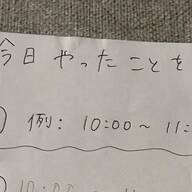 今日 やったことを
例: 10:00~ 11:
10:00